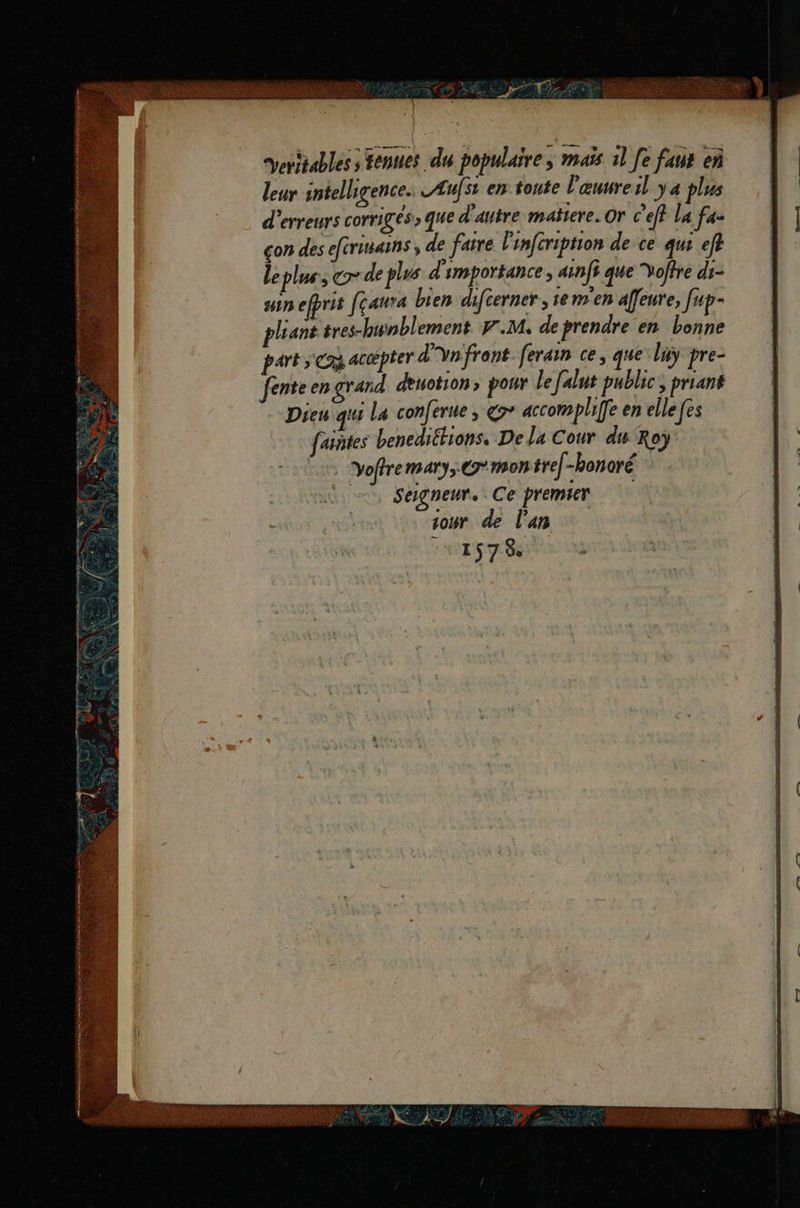 veritables, tenues du populaire, mais il se faut en
leur intelligence. Aussi en toute l'œuure il y a plus
d'erreurs corrigés, que d'autre matiere. Or c'est la fa-
çon des escriuains, de faire l'inscription de ce qui est
le plus, & de plus d'importance, ainsi que vostre di-
uin esprit sçaura bien discerner, ie m'en asseure, sup-
pliant tres-humblement V.M. de prendre en bonne
part, & accepter d'vn front serain ce, que luy pre-
sente en grand deuotion, pour le salut public, priant
Dieu qui la conserue, & accomplisse en elle ses
saintes benedictions. De la Cour du Roy
vostre mary, & mon tres-honoré
Seigneur. Ce premier
iour de l'an
1578.